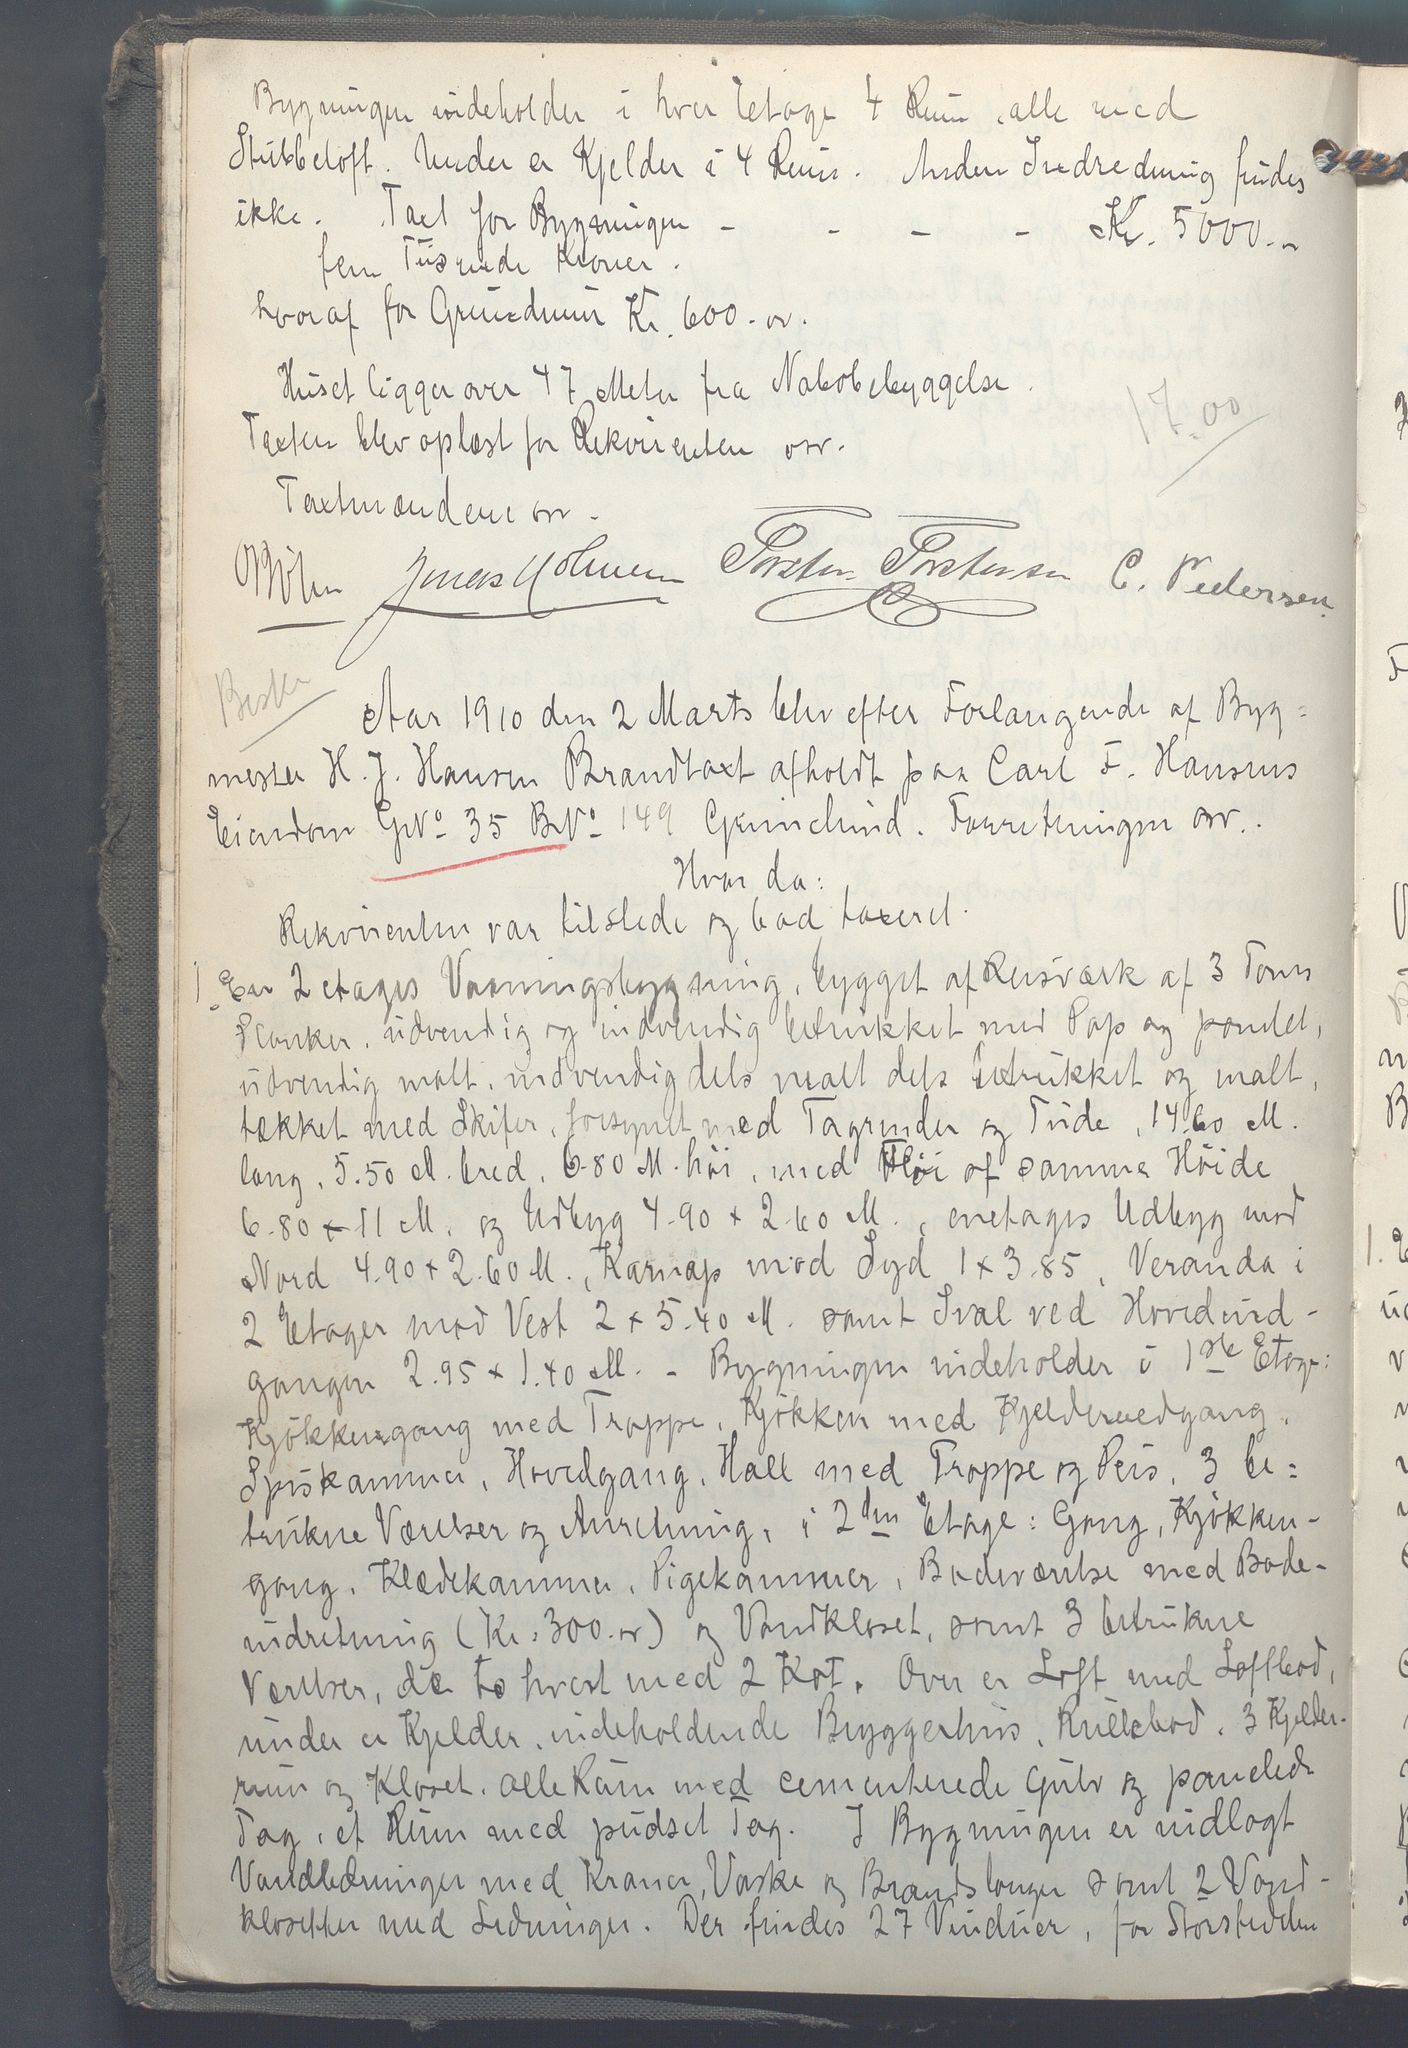 Bygningen indeholder i hver Etage 4 Rum, alle med
Stubbeloft. Under er Kjelder i 4 Rum. Anden Indredning findes
ikke. Taxt for Bygningen - - - - Kr. 5000.-
fem Tusinde Kroner.
hvoraf for Grundmur Kr. 600.-
Huset ligger over 47 Meter fra Nabobebyggelse.
17.00
Taxten blev oplæst for Rekvirenten osv.
Taxtmændene osv.
Jonas Holmen Torsten Torstensen C. Pedersen
Aar 1910 den 2 Marts blev efter Forlangende af Byg=
mester H. J. Hansen Brandtaxt afholdt paa Carl F. Hansens
Eiendom GNo 35 BNo 149 Forretningen osv..
Hvor da:
Rekvirenten var tilstede og bad taxeret.
1. En 2 etages Vaaningsbygning, bygget af Reisværk af 3 Toms
Planker, udvendig og indvendig betrukket med Pap og panelet,
udvendig malt, indvendig dels malt dels betrukket og malt,
tækket med Skifer, forsynet med Tagrender og Tude, 14.60 M.
lang, 5.50 M. bred, 6.80 M. høi, med Fløi af samme Høide
6.80 x 11 M. og Udbyg 4.90 x 2.60 M., enetages Udbyg mod
Nord 4.90 x 2.60 M., Karnap mod Syd 1 x 3.85, Veranda i
2 Etager mod Vest 2 x 5.40 M. samt Sval ved Hovedind-
gangen 2.95 x 1.40 M. - Bygningen indeholder i 1ste Etage:
Kjøkkengang med Trappe, Kjøkken med Kjeldernedgang,
Spiskammer, Hovedgang, Hall med Trappe og Peis, 3 be=
trukne Værelser og Anretning, i 2den Etage: Gang, Kjøkken-
gang, Klædekammer, Pigekammer, Badeværelse med Bade-
indretning (Kr. 300.-) og Vandkloset, samt 3 betrukne
Værelser, de to hvert med 2 Kot. Over er Loft med Loftbod,
under er Kjelder, indeholdende Bryggerhus, Rullebod, 3 Kjelder-
rum og Kloset. alle Rum med cementerede Gulv og panelede
Tag, et Rum med pudset Tag. I Bygningen er indlagt
Vandledninger med Kraner, Vaske og Brandslanger samt 2 Vand-
klosetter med Ledninger. Der findes 27 Vinduer, for Størstedelen